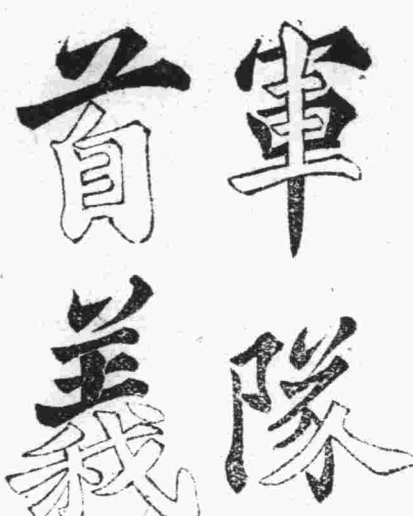 軍隊
首義